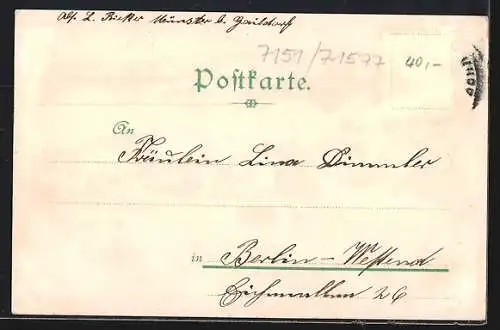 Abs. L. Münster b. Gaildorf
7151/71577
40,-
Postkarte.
An
Fräulein Lina Dimmler
in Berlin-Westend
Eichenallee 26